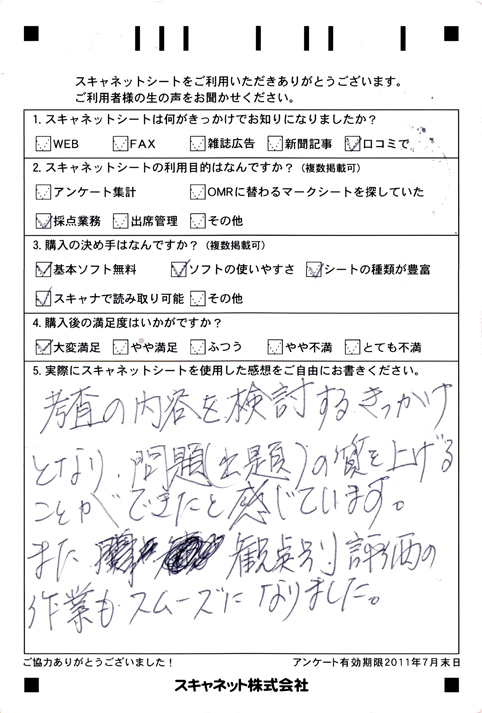 スキャネットシートをご利用いただきありがとうございます。
ご利用者様の生の声をお聞かせください。
1. スキャネットシートは何がきっかけでお知りになりましたか?
WEB FAX 雑誌広告 新聞記事 口コミで
2. スキャネットシートの利用目的はなんですか?(複数掲載可)
アンケート集計 OMRに替わるマークシートを探していた
採点業務 出席管理 その他
3. 購入の決め手はなんですか?(複数掲載可)
基本ソフト無料 ソフトの使いやすさ シートの種類が豊富
スキャナで読み取り可能 その他
4. 購入後の満足度はいかがですか?
大変満足 やや満足 ふつう やや不満 とても不満
5. 実際にスキャネットシートを使用した感想をご自由にお書きください。
考査の内容を検討するきっかけ
となり、問題(出題)の質を上げる
ことができたと感じています。
また 観点別評価の
作業もスムーズになりました。
ご協力ありがとうございました! アンケート有効期限2011年7月末日
スキャネット株式会社